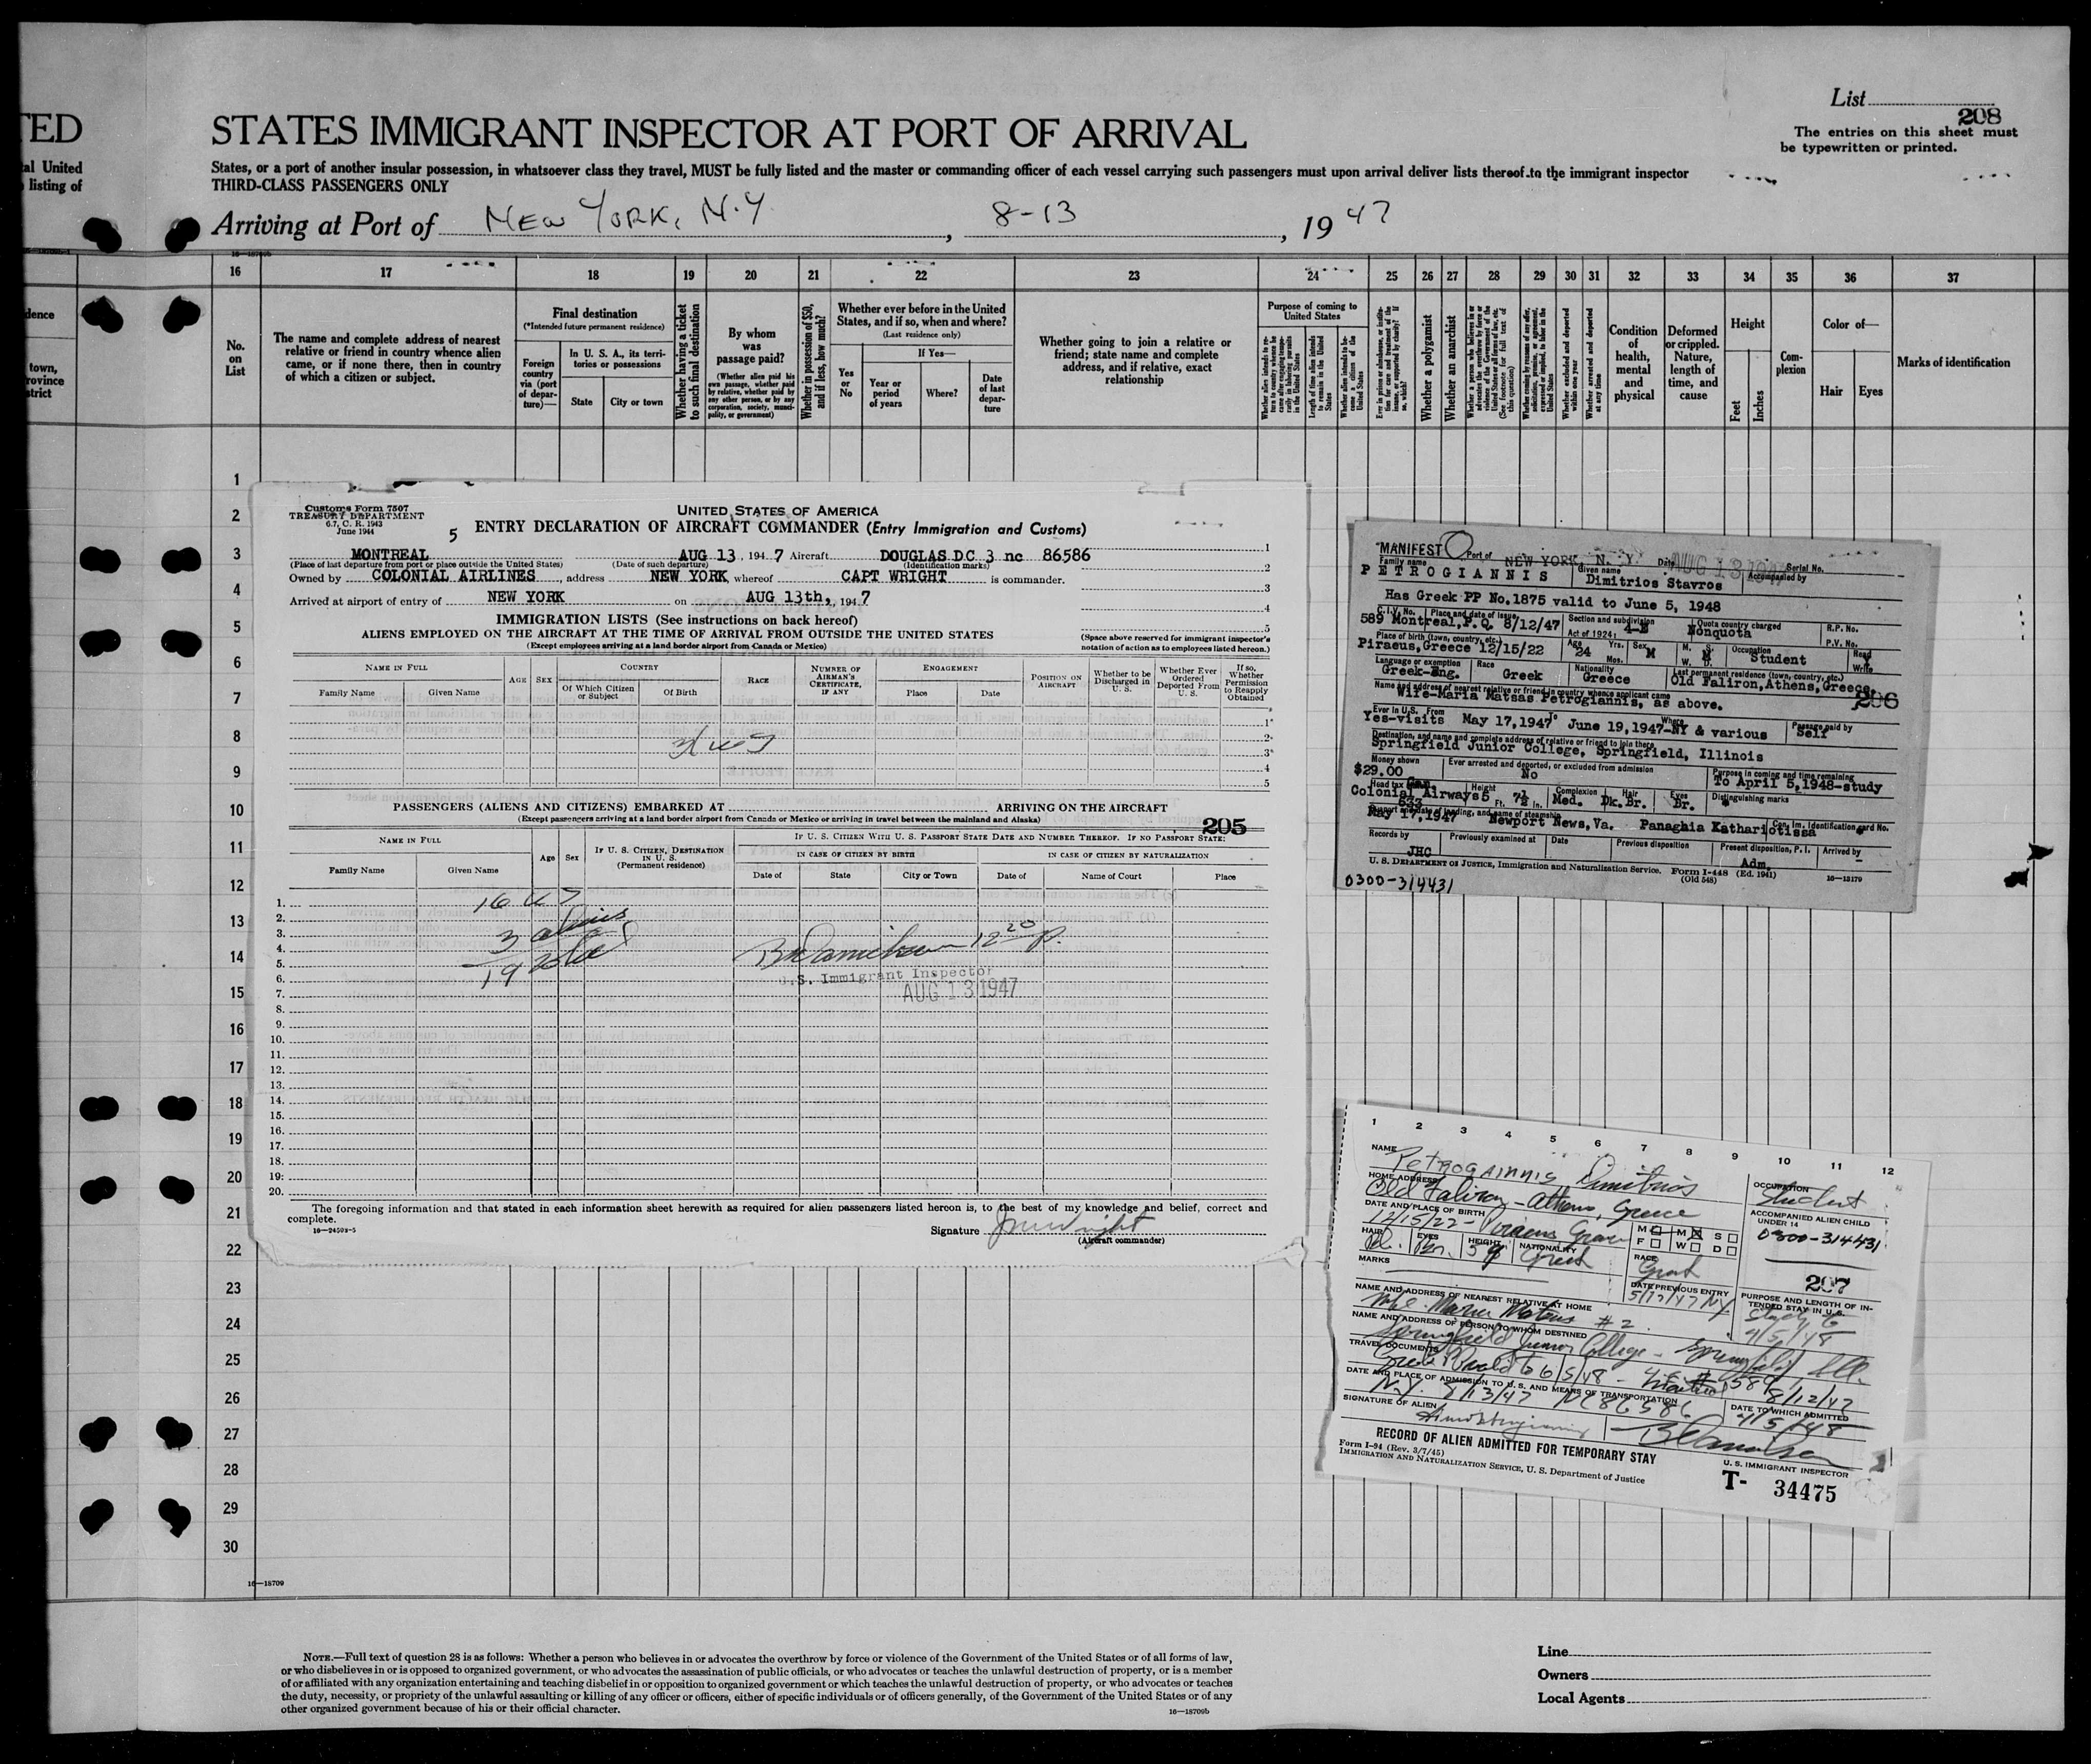 TED
al United
listing of
STATES IMMIGRANT INSPECTOR AT PORT OF ARRIVAL
List
208
The entries on this sheet must
be typewritten or printed.
States, or a port of another insular possession, in whatsoever class they travel, MUST be fully listed and the master or commanding officer of each vessel carrying such passengers must upon arrival deliver lists thereof to the immigrant inspector
THIRD-CLASS PASSENGERS ONLY
Arriving at Port of NEW YORK, N.Y , 8-13 , 19 47
16 17 18 19 20 21 22 23 24 25 26 27 28 29 30 31 32 33 34 35 36 37
No. on List
The name and complete address of nearest relative or friend in country whence alien came, or if none there, then in country of which a citizen or subject.
Final destination
(*Intended future permanent residence)
Foreign country via (port of departure)—
In U. S. A., its territories or possessions
State
City or town
Whether having a ticket to such final destination
By whom was passage paid?
(Whether alien paid his own passage, whether paid by relative, whether paid by any other person, or by any corporation, society, municipality, or government)
Whether in possession of $50, and if less, how much?
Whether ever before in the United States, and if so, when and where?
(Last residence only)
Yes or No
If Yes—
Year or period of years
Where?
Date of last departure
Whether going to join a relative or friend; state name and complete address, and if relative, exact relationship
Purpose of coming to United States
Length of time alien intends to remain in the United States
Whether alien intends to become a citizen of the United States
Whether a polygamist
Whether an anarchist
Whether excluded and deported within one year
Whether arrested and deported at any time
Condition of health, mental and physical
Deformed or crippled. Nature, length of time, and cause
Height
Feet
Inches
Complexion
Color of—
Hair
Eyes
Marks of identification
1
2
3
4
5
6
7
8
9
10
11
12
13
14
15
16
17
18
19
20
21
22
23
24
25
26
27
28
29
30
Customs Form 7507
TREASURY DEPARTMENT
6.7, C. R. 1943
June 1944
5
UNITED STATES OF AMERICA
ENTRY DECLARATION OF AIRCRAFT COMMANDER (Entry Immigration and Customs)
MONTREAL AUG 13, 194 7 Aircraft DOUGLAS DC 3 nc 86586
(Place of last departure from port or place outside the United States) (Date of such departure) (Identification marks)
Owned by COLONIAL AIRLINES, address NEW YORK whereof CAPT WRIGHT is commander.
Arrived at airport of entry of NEW YORK on AUG 13th, 194 7
IMMIGRATION LISTS (See instructions on back hereof)
ALIENS EMPLOYED ON THE AIRCRAFT AT THE TIME OF ARRIVAL FROM OUTSIDE THE UNITED STATES
(Except employees arriving at a land border airport from Canada or Mexico)
(Space above reserved for immigrant inspector's notation of action as to employees listed hereon.)
NAME IN FULL
Family Name
Given Name
AGE
SEX
COUNTRY
Of Which Citizen or Subject
Of Birth
RACE
NUMBER OF AIRMAN'S CERTIFICATE, IF ANY
ENGAGEMENT
Place
Date
POSITION ON AIRCRAFT
Whether to be Discharged in U. S.
Whether Ever Ordered Deported From U. S.
If so, Whether Permission to Reapply Obtained
PASSENGERS (ALIENS AND CITIZENS) EMBARKED AT ARRIVING ON THE AIRCRAFT
(Except passengers arriving at a land border airport from Canada or Mexico or arriving in travel between the mainland and Alaska)
205
NAME IN FULL
Family Name
Given Name
Age
Sex
IF U. S. CITIZEN, DESTINATION IN U. S.
(Permanent residence)
IF U. S. CITIZEN WITH U. S. PASSPORT STATE DATE AND NUMBER THEREOF. IF NO PASSPORT STATE:
IN CASE OF CITIZEN BY BIRTH
IN CASE OF CITIZEN BY NATURALIZATION
Date of
State
City or Town
Date of
Name of Court
Place
1.
2.
3.
4.
5.
6.
7.
8.
9.
10.
11.
12.
13.
14.
15.
16.
17.
18.
19.
20.
16 US
3 aliens
19 total
12 20 p.
U.S. Immigrant Inspector
AUG 13 1947
The foregoing information and that stated in each information sheet herewith as required for alien passengers listed hereon is, to the best of my knowledge and belief, correct and
complete.
16—24503-5
Signature
(Aircraft commander)
MANIFEST Port of NEW YORK, N. Y. Date AUG 13 1947 Serial No.
Family name Given name Accompanied by
PETROGIANNIS Dimitrios Stavros
Has Greek PP No.1875 valid to June 5, 1948
C.I.V. No. Place and date of issue Section and subdivision Quota country charged R.P. No.
589 Montreal,P.Q. 8/12/47 Act of 1924: 4-E Nonquota P.V. No.
Place of birth (town, country, etc.) Age Yrs. Mos. Sex M. S. W. D. Occupation Read Write
Piraeus,Greece 12/15/22 24 M M Student
Language or exemption Race Nationality Last permanent residence (town, country, etc.)
Greek-Eng. Greek Greece Old Faliron,Athens,Greece.
206
Name and address of nearest relative or friend in country whence applicant came
Wife-Maria Matsas Petrogiannis, as above.
Ever in U.S. From To Where Passage paid by
Yes-visits May 17,1947 June 19,1947-NY & various Self
Destination, and name and complete address of relative or friend to join there
Springfield Junior College, Springfield, Illinois
Money shown Ever arrested and deported, or excluded from admission Purpose in coming and time remaining
$29.00 No To April 5,1948-study
Head tax Height Complexion Hair Eyes Distinguishing marks
Colonial Airways 5 Ft. 7½ In. Med. Dk.Br. Br.
May 17,1947 Newport News,Va. Panaghia Kathariotissa
Records by Previously examined at Date Previous disposition Present disposition, P. I. Arrived by
JHC Adm.
U. S. DEPARTMENT OF JUSTICE, Immigration and Naturalization Service. Form I-448 (Ed. 1941)
(Old 548)
16—13179
0300-314431
1 2 3 4 5 6 7 8 9 10 11 12
NAME
Petrogainnis Dimitrios
OCCUPATION
Student
HOME ADDRESS
Old Faliron - Athens, Greece
ACCOMPANIED ALIEN CHILD UNDER 14
0300-314431
DATE AND PLACE OF BIRTH
12/15/22 - Piraeus Greece
M F M W S D
HAIR EYES HEIGHT NATIONALITY RACE
Br. Greek Greek
MARKS
207
DATE PREVIOUS ENTRY
5/17/47 NY
PURPOSE AND LENGTH OF INTENDED STAY IN U.S.
Study to
4/5/48
NAME AND ADDRESS OF NEAREST RELATIVE AT HOME
Wife - Maria Matsas #2
NAME AND ADDRESS OF PERSON TO WHOM DESTINED
Springfield Junior College - Springfield, Ill.
TRAVEL DOCUMENTS
Greek PP valid to 6/5/48 - 589 8/12/47
DATE AND PLACE OF ADMISSION TO U. S. AND MEANS OF TRANSPORTATION
N.Y. 8/13/47 NC 86586
DATE TO WHICH ADMITTED
4/5/48
SIGNATURE OF ALIEN
U. S. IMMIGRANT INSPECTOR
RECORD OF ALIEN ADMITTED FOR TEMPORARY STAY
Form I-94 (Rev. 3/7/45)
IMMIGRATION AND NATURALIZATION SERVICE, U. S. Department of Justice
T- 34475
16—18709
NOTE.—Full text of question 28 is as follows: Whether a person who believes in or advocates the overthrow by force or violence of the Government of the United States or of all forms of law,
or who disbelieves in or is opposed to organized government, or who advocates the assassination of public officials, or who advocates or teaches the unlawful destruction of property, or is a member
of or affiliated with any organization entertaining and teaching disbelief in or opposition to organized government or which teaches the unlawful destruction of property, or who advocates or teaches
the duty, necessity, or propriety of the unlawful assaulting or killing of any officer or officers, either of specific individuals or of officers generally, of the Government of the United States or of any
other organized government because of his or their official character.
16—18709b
Line
Owners
Local Agents